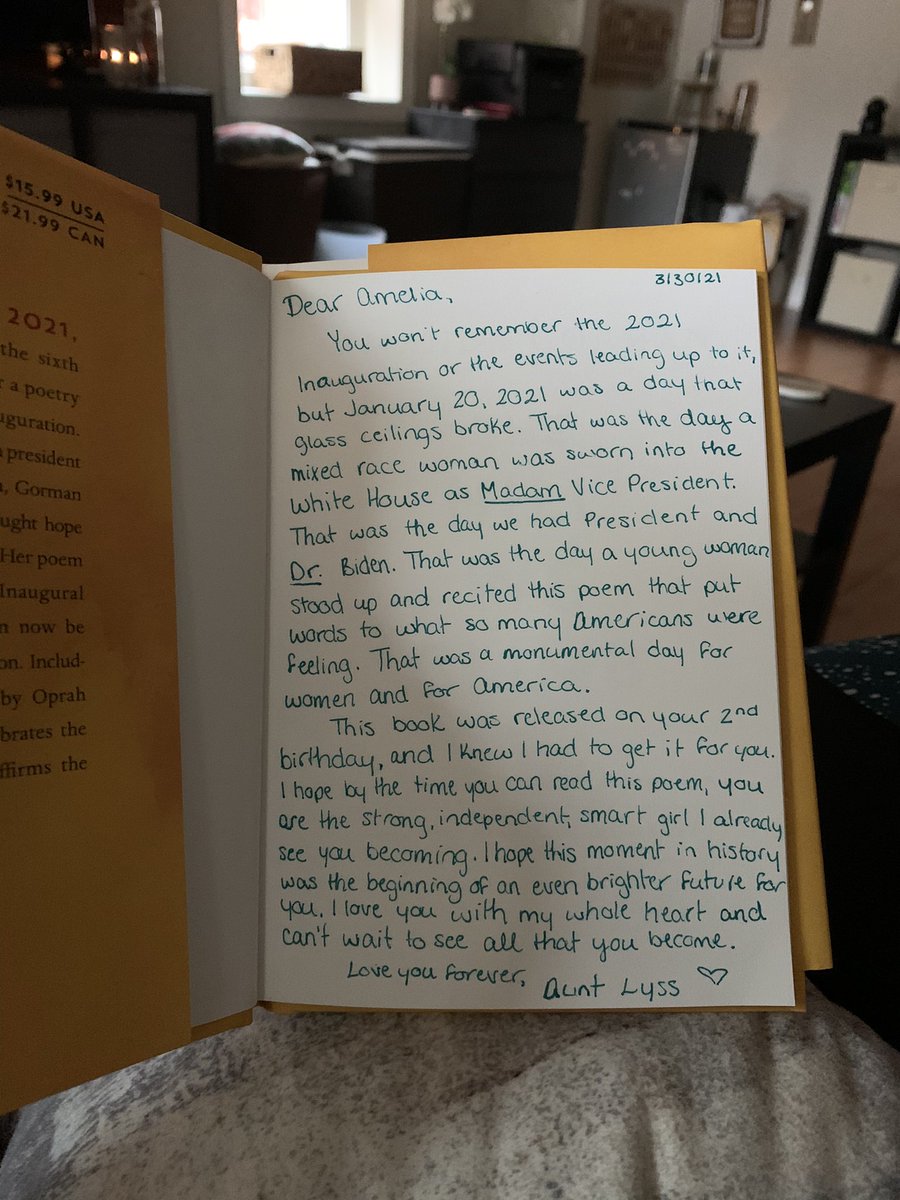 $15.99 USA
$21.99 CAN
2021,
the sixth
r a poetry
uguration.
president
, Gorman
ught hope
Her poem
Inaugural
n now be
on. Includ-
by Oprah
brates the
ffirms the
3/30/21
Dear Amelia,
You won't remember the 2021
Inauguration or the events leading up to it,
but January 20, 2021 was a day that
glass ceilings broke. That was the day a
mixed race woman was sworn into the
White House as Madam Vice President.
That was the day we had President and
Dr. Biden. That was the day a young woman
stood up and recited this poem that put
words to what so many Americans were
feeling. That was a monumental day for
women and for America.
This book was released on your 2nd
birthday, and I knew I had to get it for you.
I hope by the time you can read this poem, you
are the strong, independent, smart girl I already
see you becoming. I hope this moment in history
was the beginning of an even brighter future for
you. I love you with my whole heart and
can't wait to see all that you become.
Love you forever,
Aunt Lyss ♡